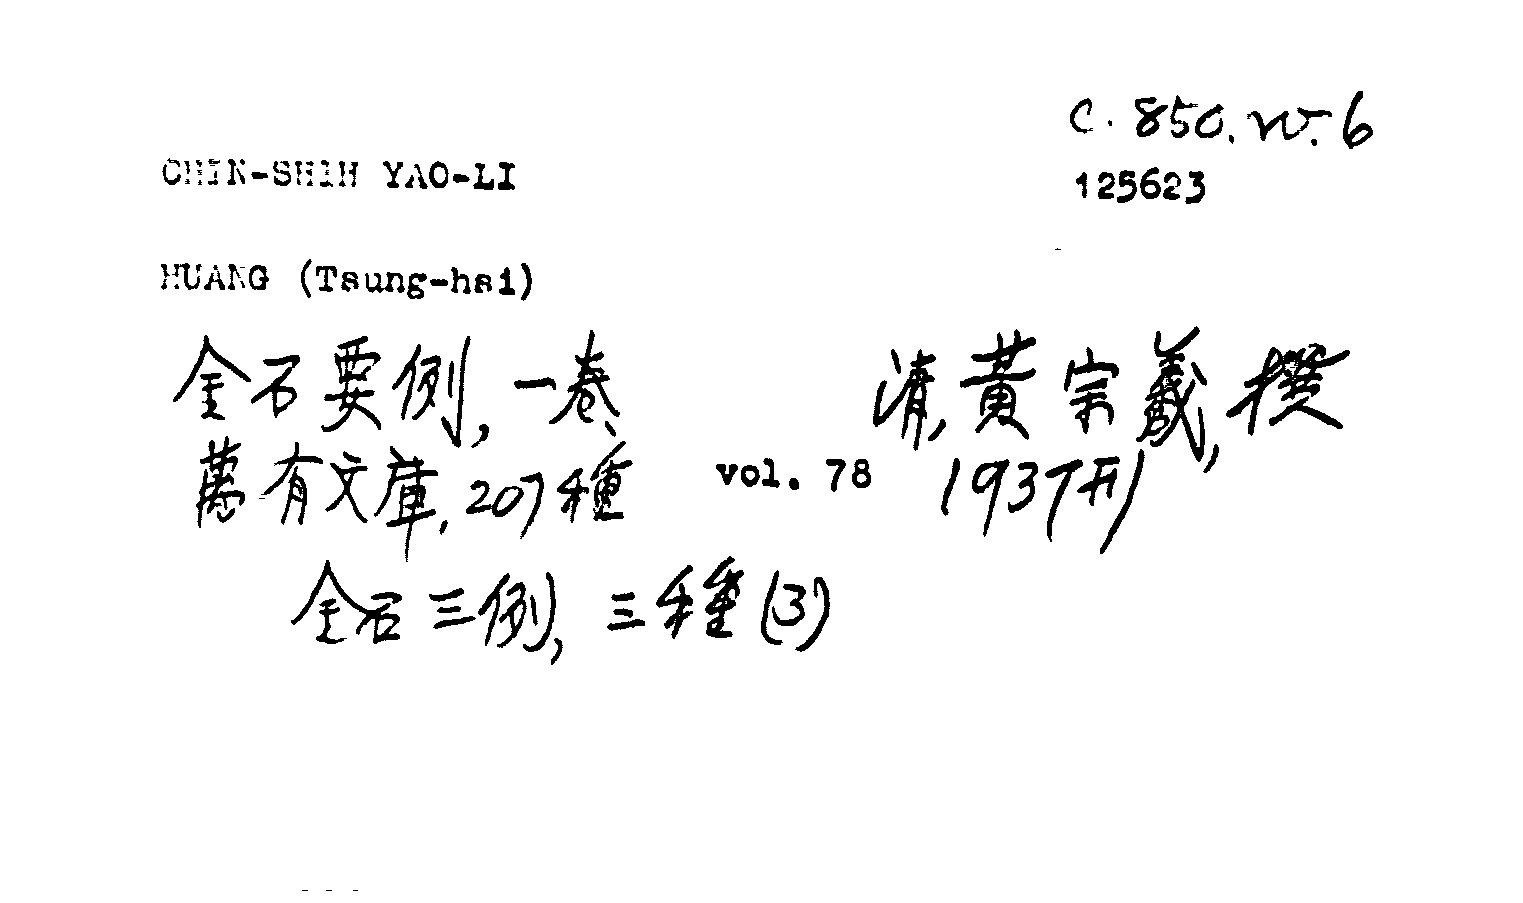 C. 850. w. 6
CHIN-SHIH YAO-LI
125623
HUANG (Tsung-hsi)
金石要例, 一卷、 清, 黃宗羲, 撰
萬有文庫, 207種 vol. 78 1937刊
金石三例, 三種 (3)